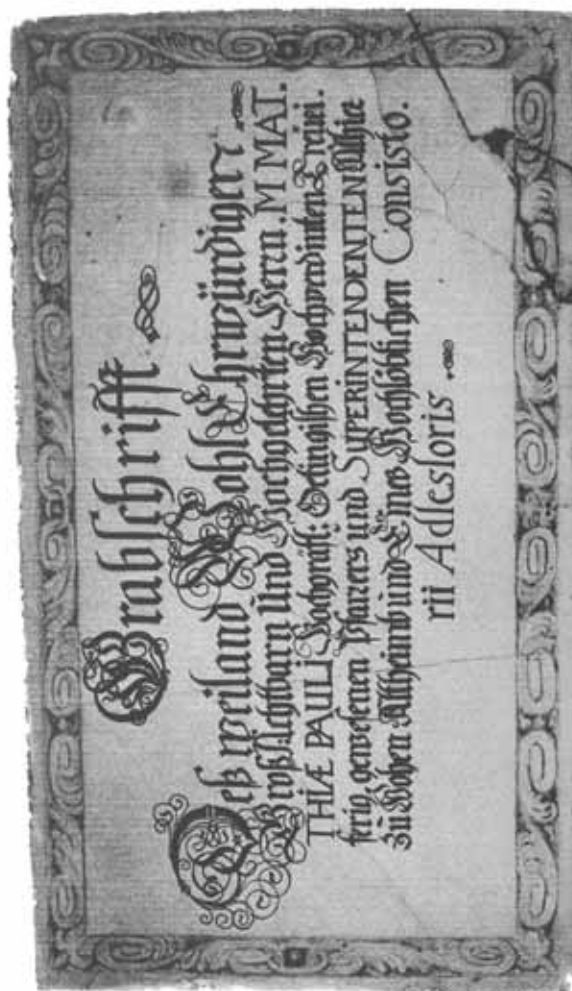 Grabschrifft
Deß weiland WohlEhrwürdigen
GroßAchtbarn Und Hochgelehrten Herrn. M MAT.
THIÆ PAULI Hochgräfl: Oetingischen Hochverdinten Treüei.
ferig gewesenen Pfarrers und SUPERINTENDENTEN
Zu Hohen Altheim und Eines Hochlöblichen Consisto.
rii Adsesforis